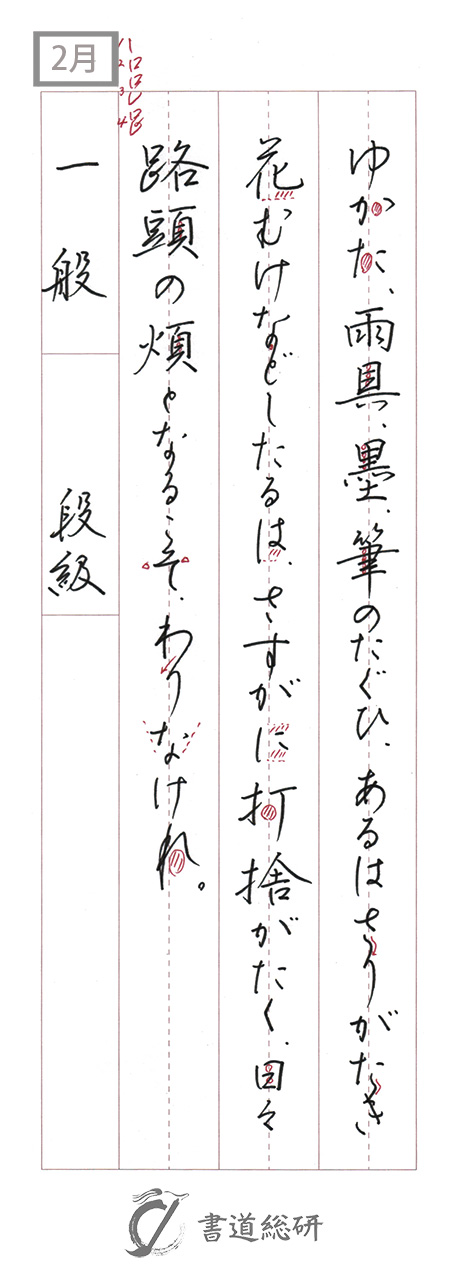 2月
ゆかた、雨具、墨、筆のたぐひ、あるはさりがたき
花むけなどしたるは、さすがに打捨がたく、
路頭の煩となるこそ、わりなけれ。
一般
段級
書道総研